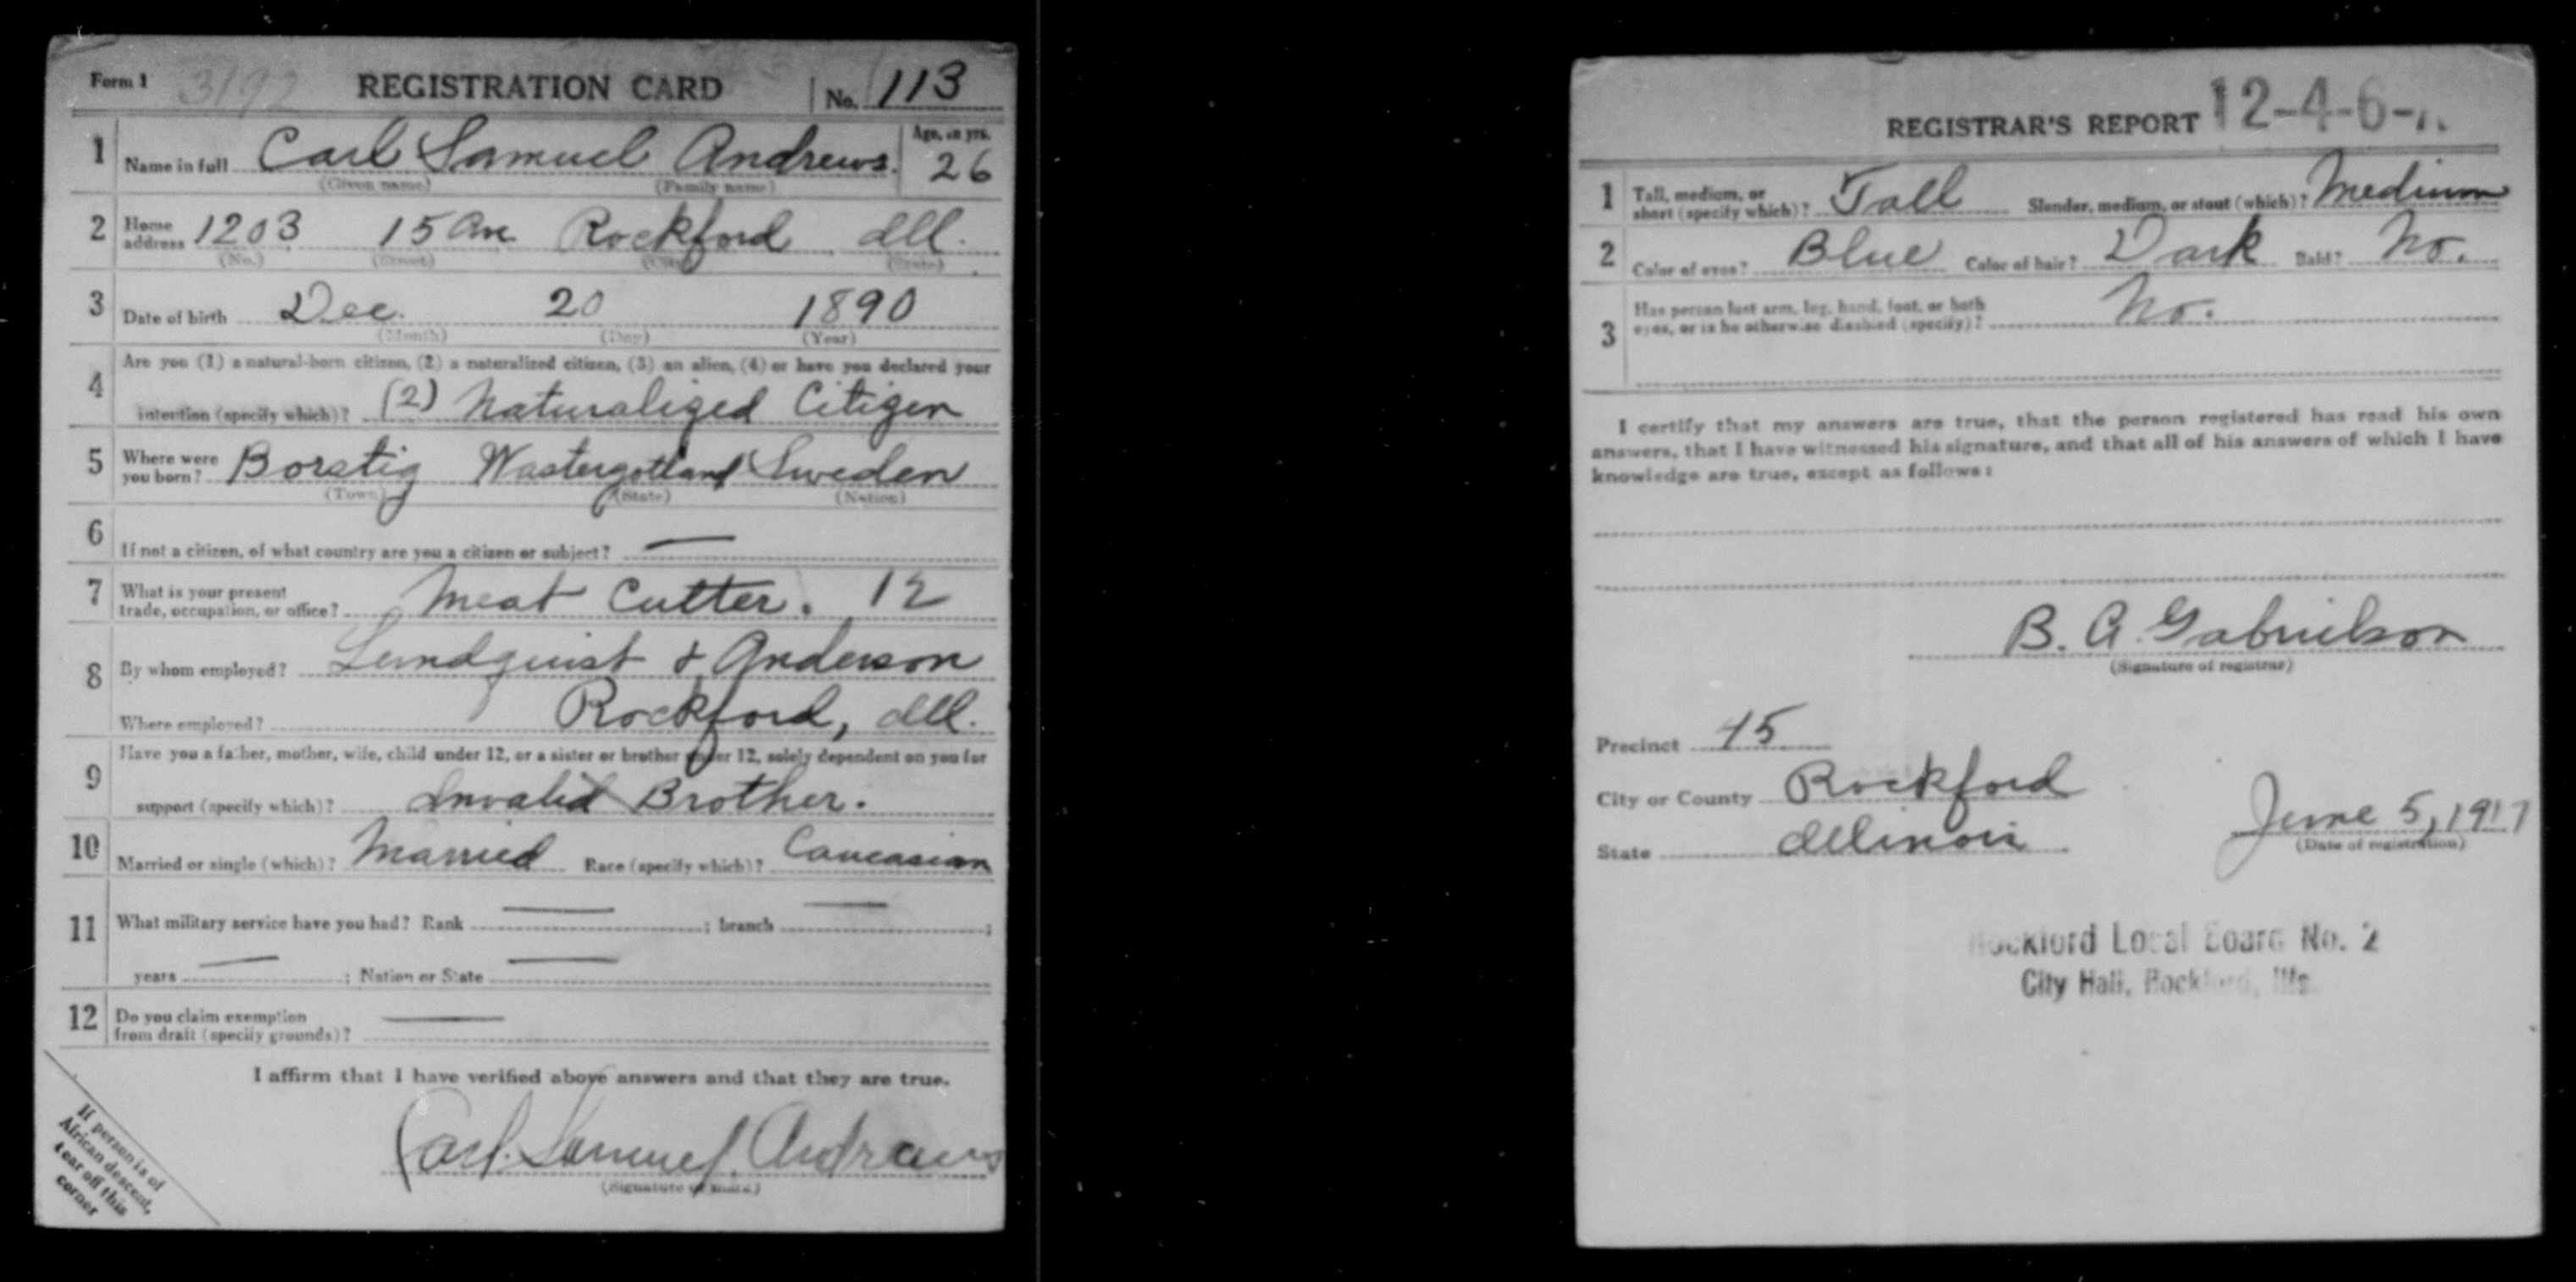 Form 1 3192 REGISTRATION CARD No. 113
1 Name in full Carl Samuel Andrews. Age, in yrs. 26
(Given name) (Family name)
2 Home address 1203 15 Ave Rockford Ill.
(No.) (Street) (City) (State)
3 Date of birth Dec. 20 1890
(Month) (Day) (Year)
4 Are you (1) a natural-born citizen, (2) a naturalized citizen, (3) an alien, (4) or have you declared your
intention (specify which)? (2) Naturalized Citizen
5 Where were you born? Borstig Wastergotland Sweden
(Town) (State) (Nation)
6 If not a citizen, of what country are you a citizen or subject? —
7 What is your present trade, occupation, or office? Meat Cutter. 12
8 By whom employed? Lundquist & Anderson
Where employed? Rockford, Ill.
9 Have you a father, mother, wife, child under 12, or a sister or brother under 12, solely dependent on you for
support (specify which)? Invalid Brother.
10 Married or single (which)? Married Race (specify which)? Caucasian
11 What military service have you had? Rank — ; branch — ;
years — ; Nation or State —
12 Do you claim exemption from draft (specify grounds)? —
I affirm that I have verified above answers and that they are true.
Carl. Samuel. Andrews
(Signature or mark)
If person is of
African descent,
tear off this
corner
REGISTRAR'S REPORT 12-4-6-
1 Tall, medium, or short (specify which)? Tall Slender, medium, or stout (which)? Medium
2 Color of eyes? Blue Color of hair? Dark Bald? No.
3 Has person lost arm, leg, hand, foot, or both eyes, or is he otherwise disabled (specify)? No.
I certify that my answers are true, that the person registered has read his own
answers, that I have witnessed his signature, and that all of his answers of which I have
knowledge are true, except as follows:
B. A. Gabrielson
(Signature of registrar)
Precinct 15
City or County Rockford
State Illinois
June 5, 1917
(Date of registration)
Rockford Local Board No. 2
City Hall, Rockford, Ills.